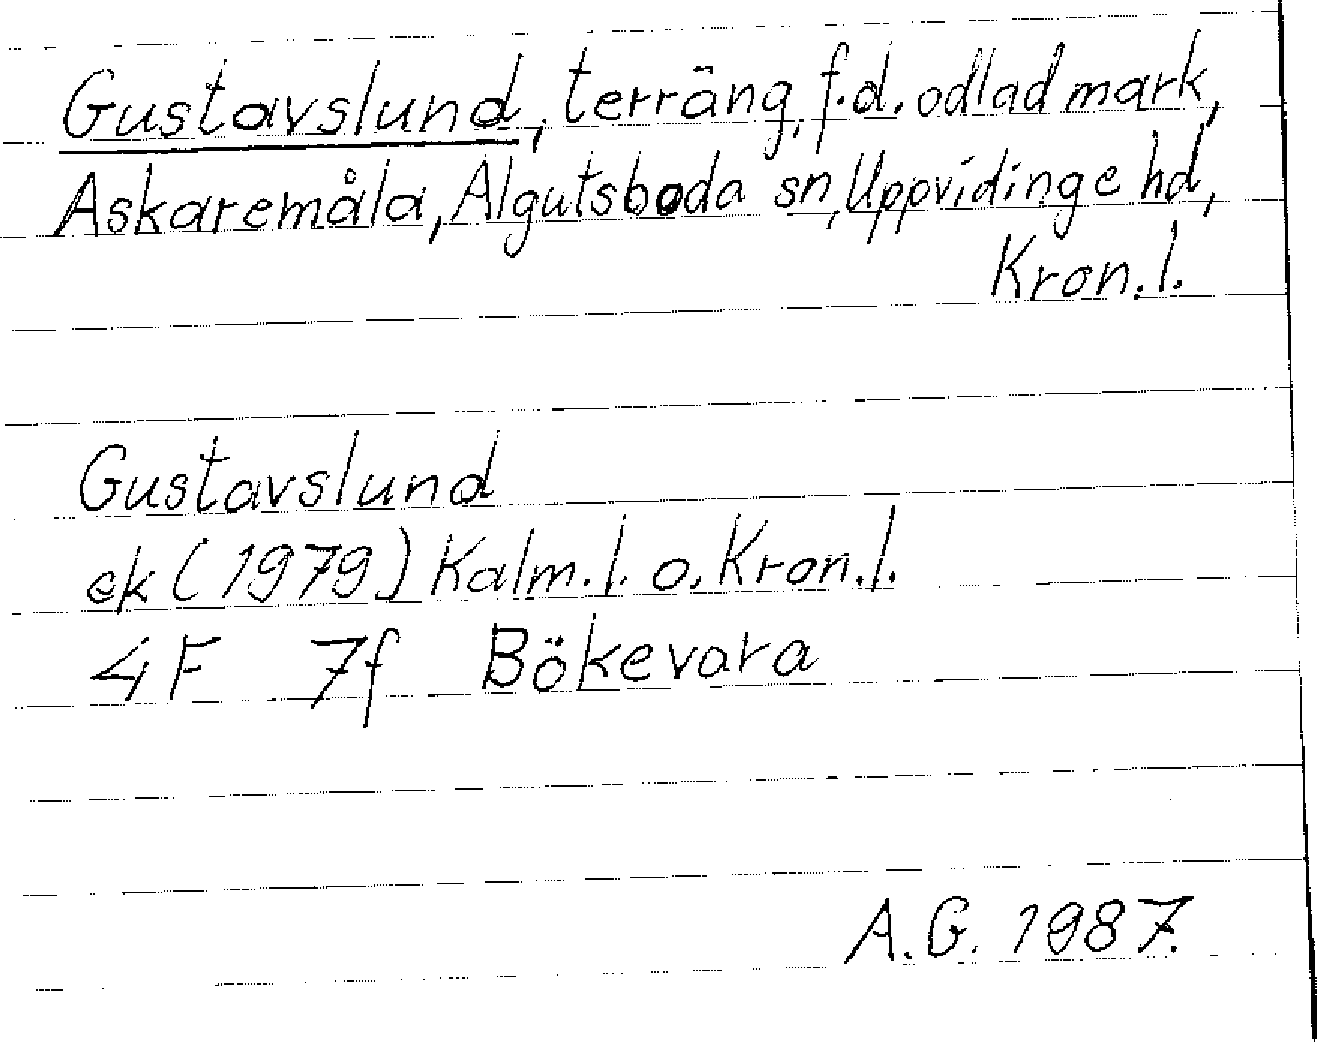 Gustavslund, terräng, f.d. odlad mark,
Askaremåla, Algutsboda sn, Uppvidinge hd,
Kron.l.
Gustavslund
ek (1979) Kalm.l. o. Kron.l.
4F 7f Bökevara
A.G. 1987.